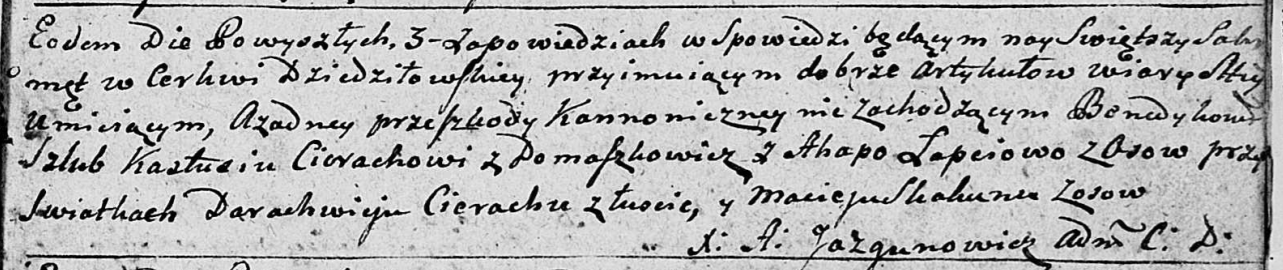 Eodem Die Powyszłych, 3-Zapowiedziach w Spowiedzi będącym nay Swiętszy Sakr
męt w Cerkwi Dziedziłowskiey przyimuiącym dobrze Artykułow wiary Stey
Umieiącym, Azadney przeszkody Kannoniczney nie zachodzącym Benedykowł
Szlub Kastusiu Cierachowi z Domaszkowicz z Ahapo Łapciowo z Osow przy
Swiatkach Darachwieju Cierachu z , y Macieju Skakunu zosow
X: A: Jazgunowicz Adm C: D: